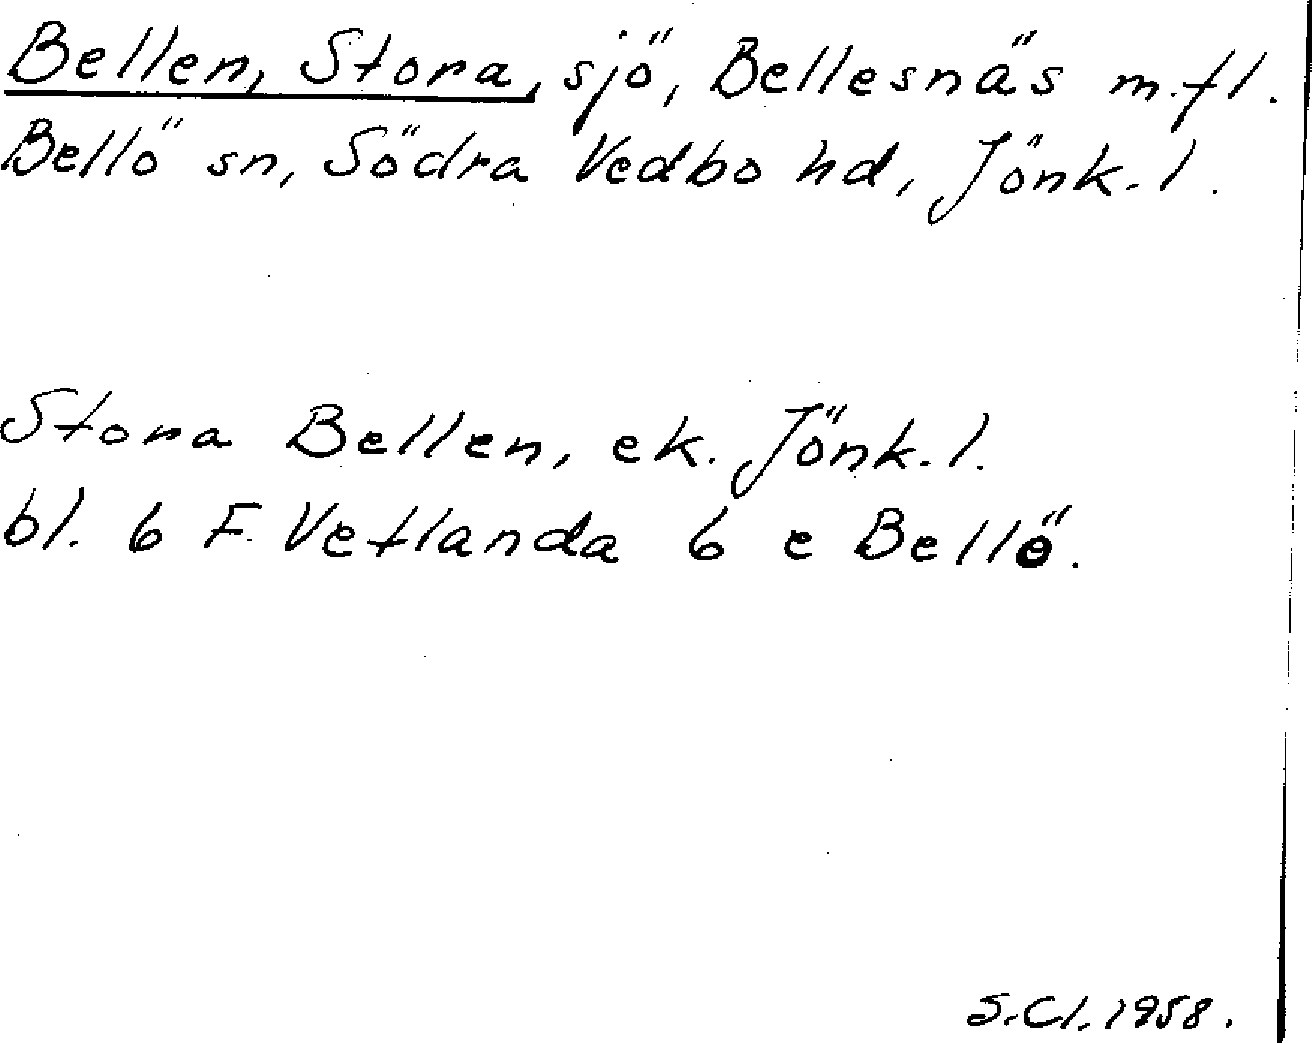 Bellen, Stora, sjö, Bellesnäs m.fl.
Bellö sn, Södra Vedbo hd, Jönk. l.
Stora Bellen, ek. Jönk. l.
bl. 6 F Vetlanda 6 e Bellö.
S.Cl. 1958.